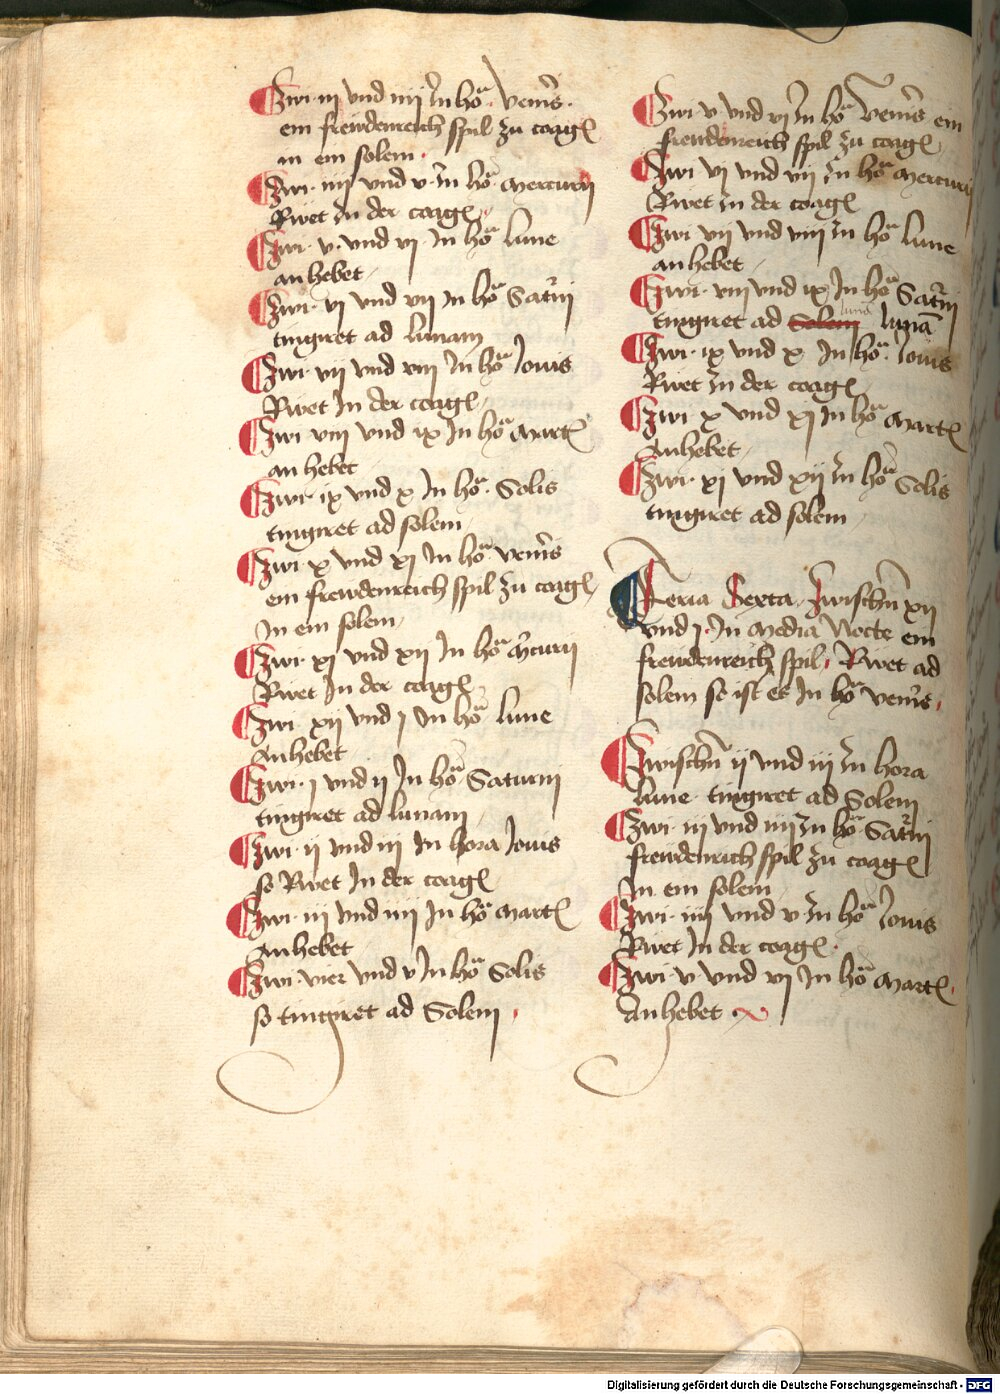 Zwi· iii und iiii In hoª· Ven̄is·
ein frewdenreich spil zu coagl
in ein solem·
Zwi· iiii und v· In hoª mercurij
Rivet In der coagl
Zwi· v· und vi In hoª lune
an hebet
Zwi· vi und vii In hoª Sat̄nj
tingiret ad lunam
Zwi· vii und viii In hoª Jouis
Rivet In der coagl
Zwi viii und ix In hoª Martl
an hebet
Zwi· ix und x In hoª· Solis
tingiret ad solem
Zwi x und xi In hoª ven̄is
ein frewdenreich spil zu coagl
In ein solem
Zwi· xi und xii In hoª m̄curij
Rivet In der coagl
Zwi xii und j In hoª lune
Anhebet
Zwi· j und ii In hoª Saturnj
tingiret ad lunam
Zwi· ii und iij In hora Jouis
so Rivet In der coagl
Zwi· iii und iiii In hoª Martl
Anhebet
Zwi· vier und v In hoª Solis
so tingiret ad Solem
Zwi v und vj In hoª Ven̄is ein
frewdenreich spil zu coagl
Zwi vj und vij In hoª mercurij
Rivet In der coagl
Zwi vij und viii In hoª lune
an hebet
Zwi· viii und ix In hoª Sat̄nj
tingiret ad Solem lunā
Zwi· ix und x In hoª· Jouis
Rivet In der coagl
Zwi x und xj In hoª Martl
Anhebet
Zwi· xj und xij In hoª Solis
tingiret ad solem
Feria Sexta Zwischn̄ xij
und j· In Media Nocte ein
frewdenreich spil· Rivet ad
solem so ist es In hoª ven̄is·
Zwischn̄ ij und iij In hora
lune tingiret ad Solem
Zwi· iii und iiii In hoª Sat̄nj
frewdenrich spil zu coagl
In ein solem
Zwi· iiii und v In hoª Jouis
Rivet In der coagl·
Zwi· v und vj In hoª Martl·
Anhebet
Digitalisierung gefördert durch die Deutsche Forschungsgemeinschaft - DFG